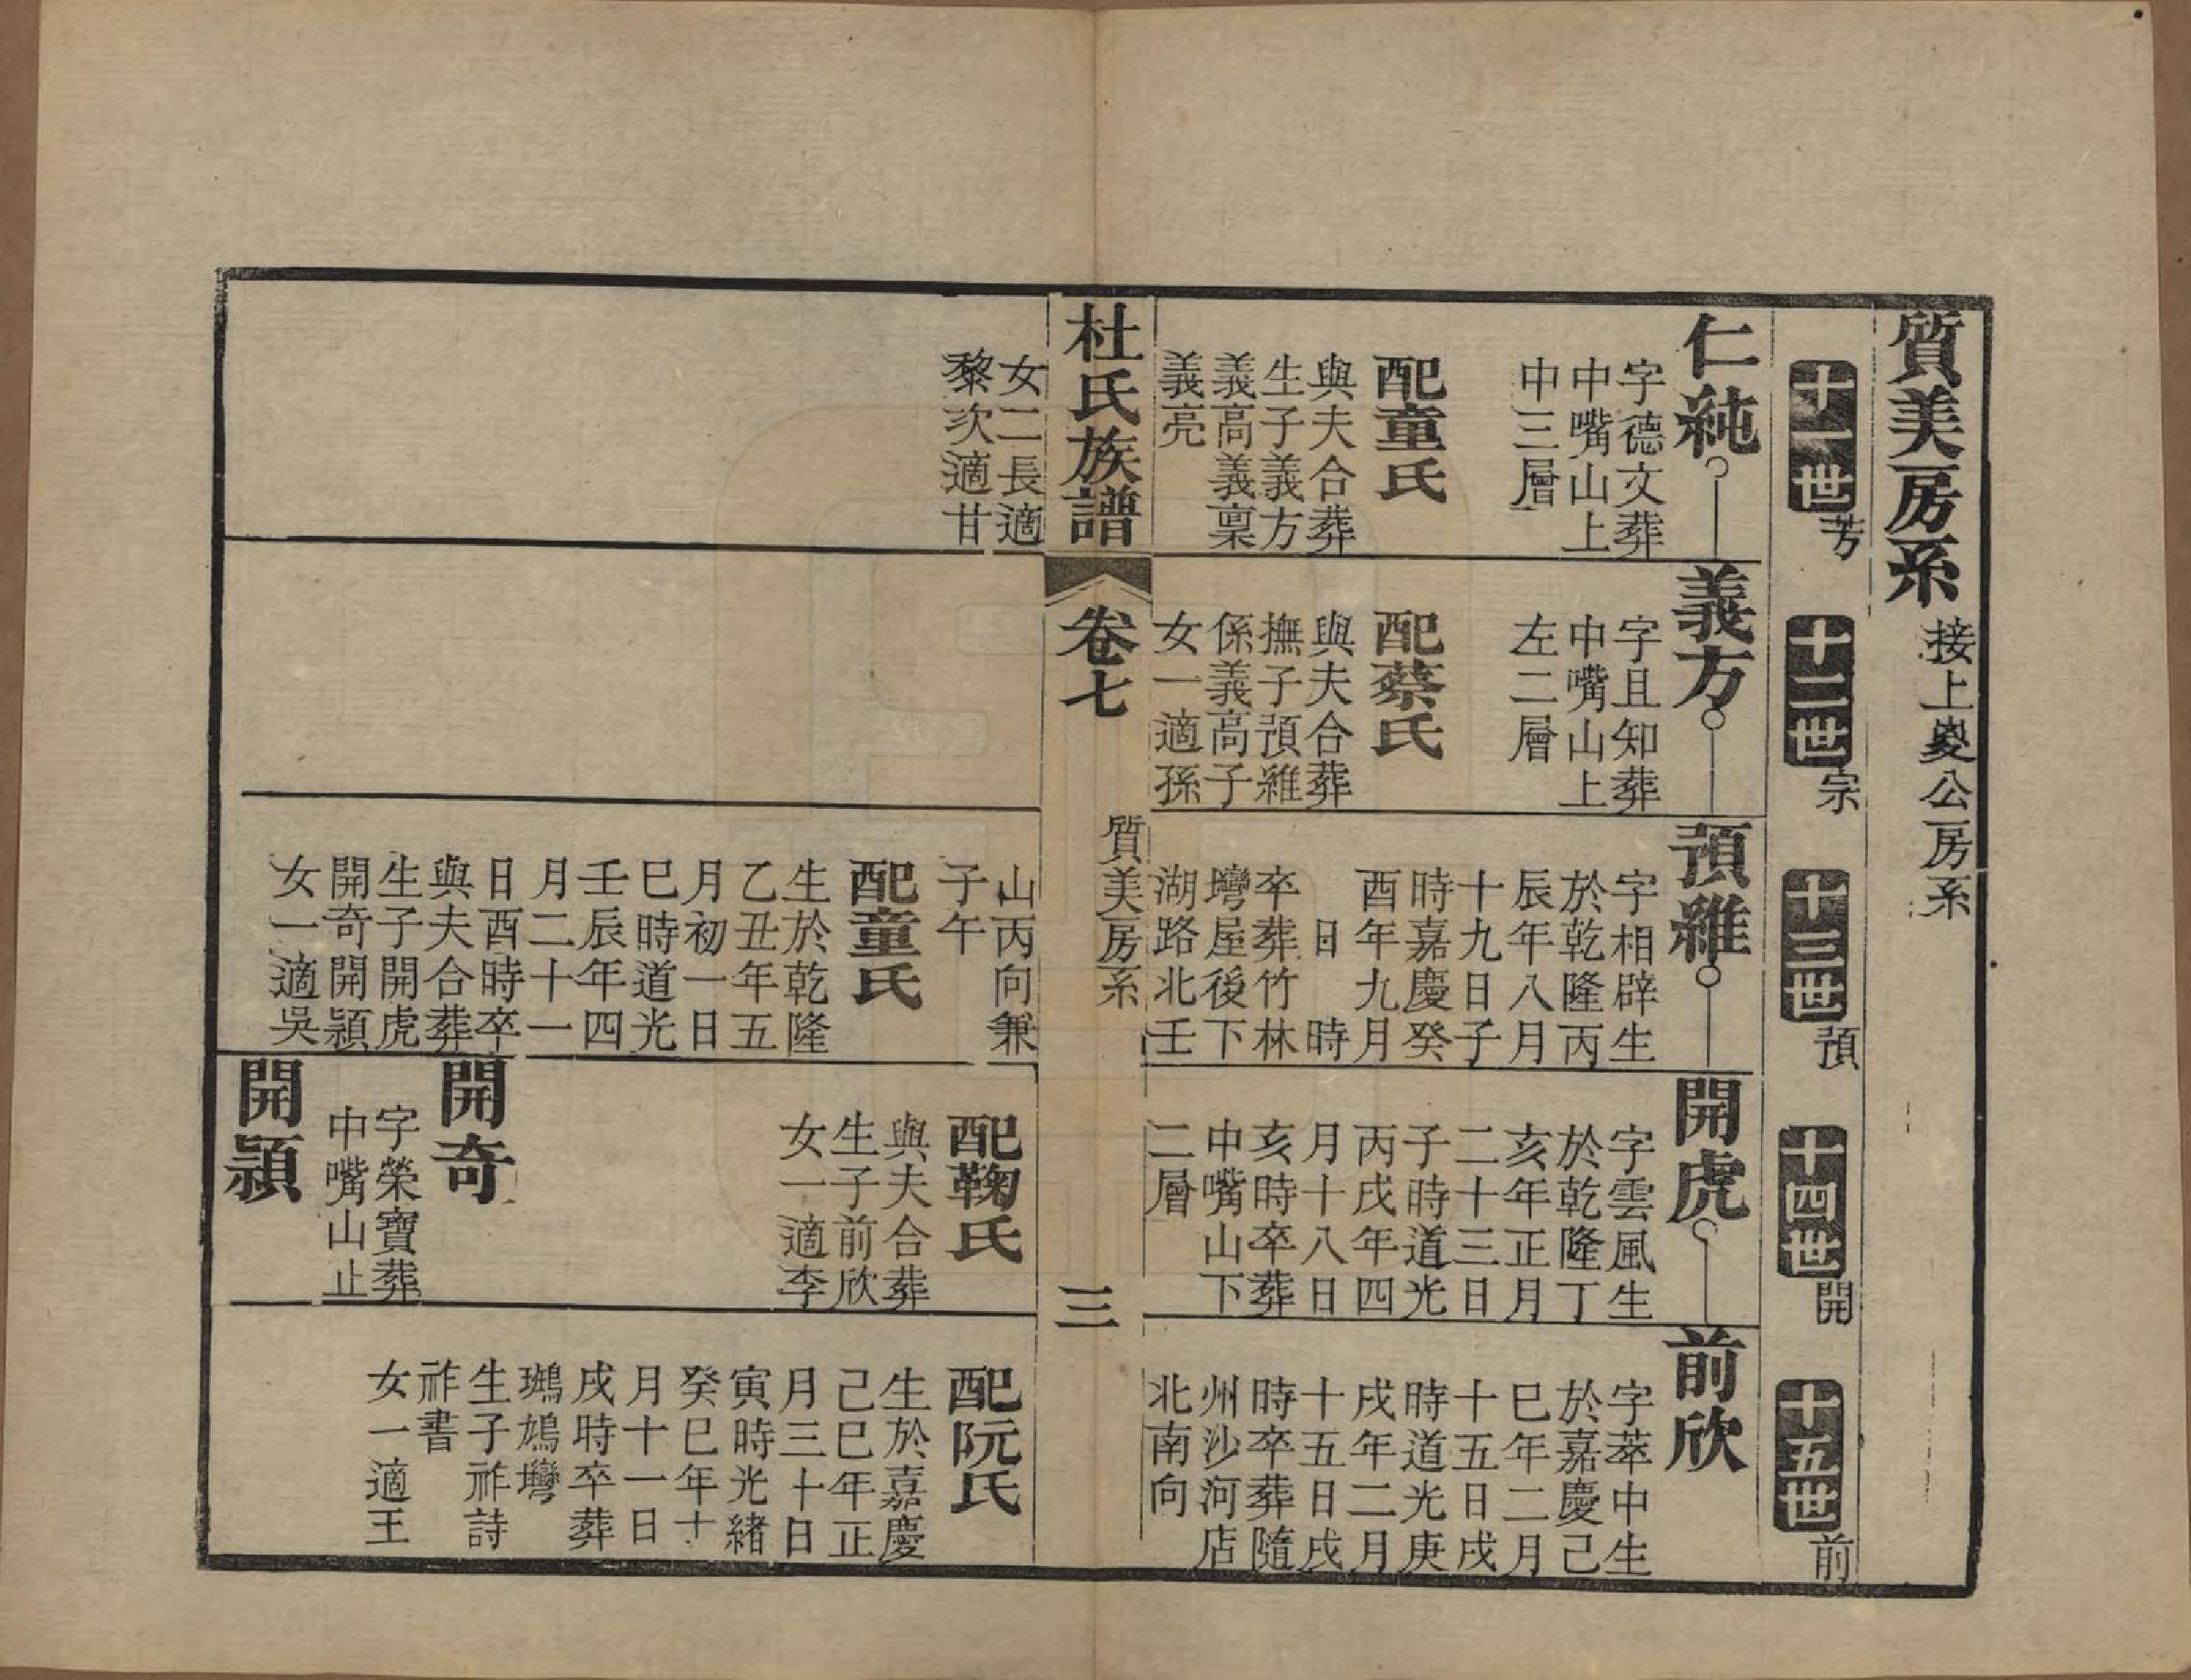 質美房系
接上㚇公房系
十一世
芳
十二世
宗
十三世
預
十四世
開
十五世
前
仁純
字德文葬
中嘴山上
中三層
配童氏
與夫合葬
生子義方
義高義稟
義亮
女二長適
黎次適甘
義方
字且知葬
中嘴山上
左二層
配蔡氏
與夫合葬
撫子預維
係義高子
女一適孫
預維
字相辟生
於乾隆丙
辰年八月
十九日子
時嘉慶癸
酉年九月
日 時
卒葬竹林
塆屋後下
湖路北壬
山丙向兼
子午
配童氏
生於乾隆
乙丑年五
月初一日
巳時道光
壬辰年四
月二十一
日酉時卒
與夫合葬
生子開虎
開奇開潁
女一適吳
開虎
字雲風生
於乾隆丁
亥年正月
二十三日
子時道光
丙戌年四
月十八日
亥時卒葬
中嘴山下
二層
配鞠氏
與夫合葬
生子前欣
女一適李
開奇
字榮寶葬
中嘴山止
開潁
前欣
字萃中生
於嘉慶己
巳年二月
十五日戌
時道光庚
戌年二月
十五日戌
時卒葬隨
州沙河店
北南向
配阮氏
生於嘉慶
己巳年正
月三十日
寅時光緒
癸巳年十
月十一日
戌時卒葬
鳩塆
生子祚詩
祚書
女一適王
杜氏族譜
卷七
質美房系
三